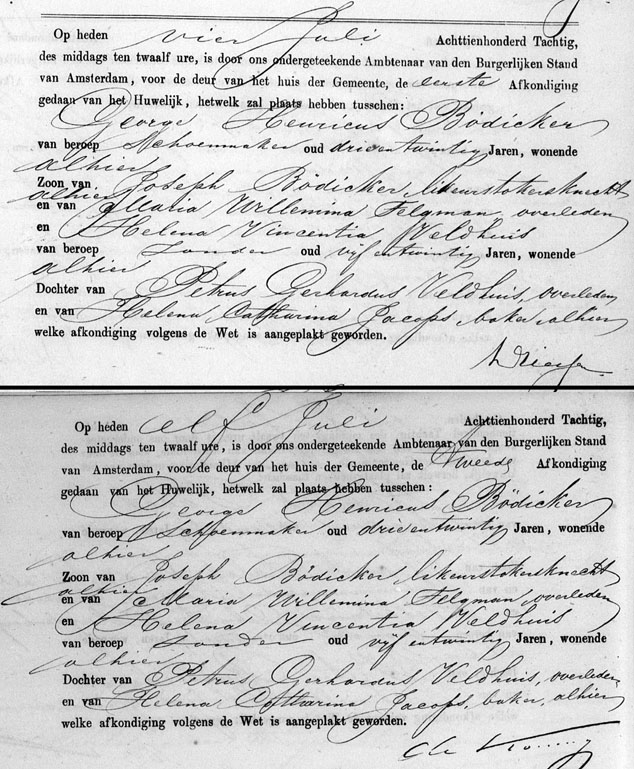 Op heden vier Juli Achttienhonderd Tachtig,
des middags ten twaalf ure, is door ons ondergeteekende Ambtenaar van den Burgerlijken Stand
van Amsterdam, voor de deur van het huis der Gemeente, de eerste Afkondiging
gedaan van het Huwelijk, hetwelk zal plaats hebben tusschen:
George Henricus Bödicker
van beroep Schoenmaker oud drieentwintig Jaren, wonende
alhier
Zoon van Joseph Bödicker, likeurstokersknecht
alhier
en van Maria Willemina Felgman, overleden
en Helena Vincentia Veldhuis
van beroep zonder oud vijfentwintig Jaren, wonende
alhier
Dochter van Petrus Gerhardus Veldhuis, overleden
en van Helena Catharina Jacops, baker, alhier
welke afkondiging volgens de Wet is aangeplakt geworden.
Op heden elf Juli Achttienhonderd Tachtig,
des middags ten twaalf ure, is door ons ondergeteekende Ambtenaar van den Burgerlijken Stand
van Amsterdam, voor de deur van het huis der Gemeente, de Tweede Afkondiging
gedaan van het Huwelijk, hetwelk zal plaats hebben tusschen:
George Henricus Bödicker
van beroep Schoenmaker oud drieentwintig Jaren, wonende
alhier
Zoon van Joseph Bödicker, likeurstokersknecht
alhier
en van Maria Willemina Felgman, overleden
en Helena Vincentia Veldhuis
van beroep zonder oud vijfentwintig Jaren, wonende
alhier
Dochter van Petrus Gerhardus Veldhuis, overleden
en van Helena Catharina Jacops, baker, alhier
welke afkondiging volgens de Wet is aangeplakt geworden.